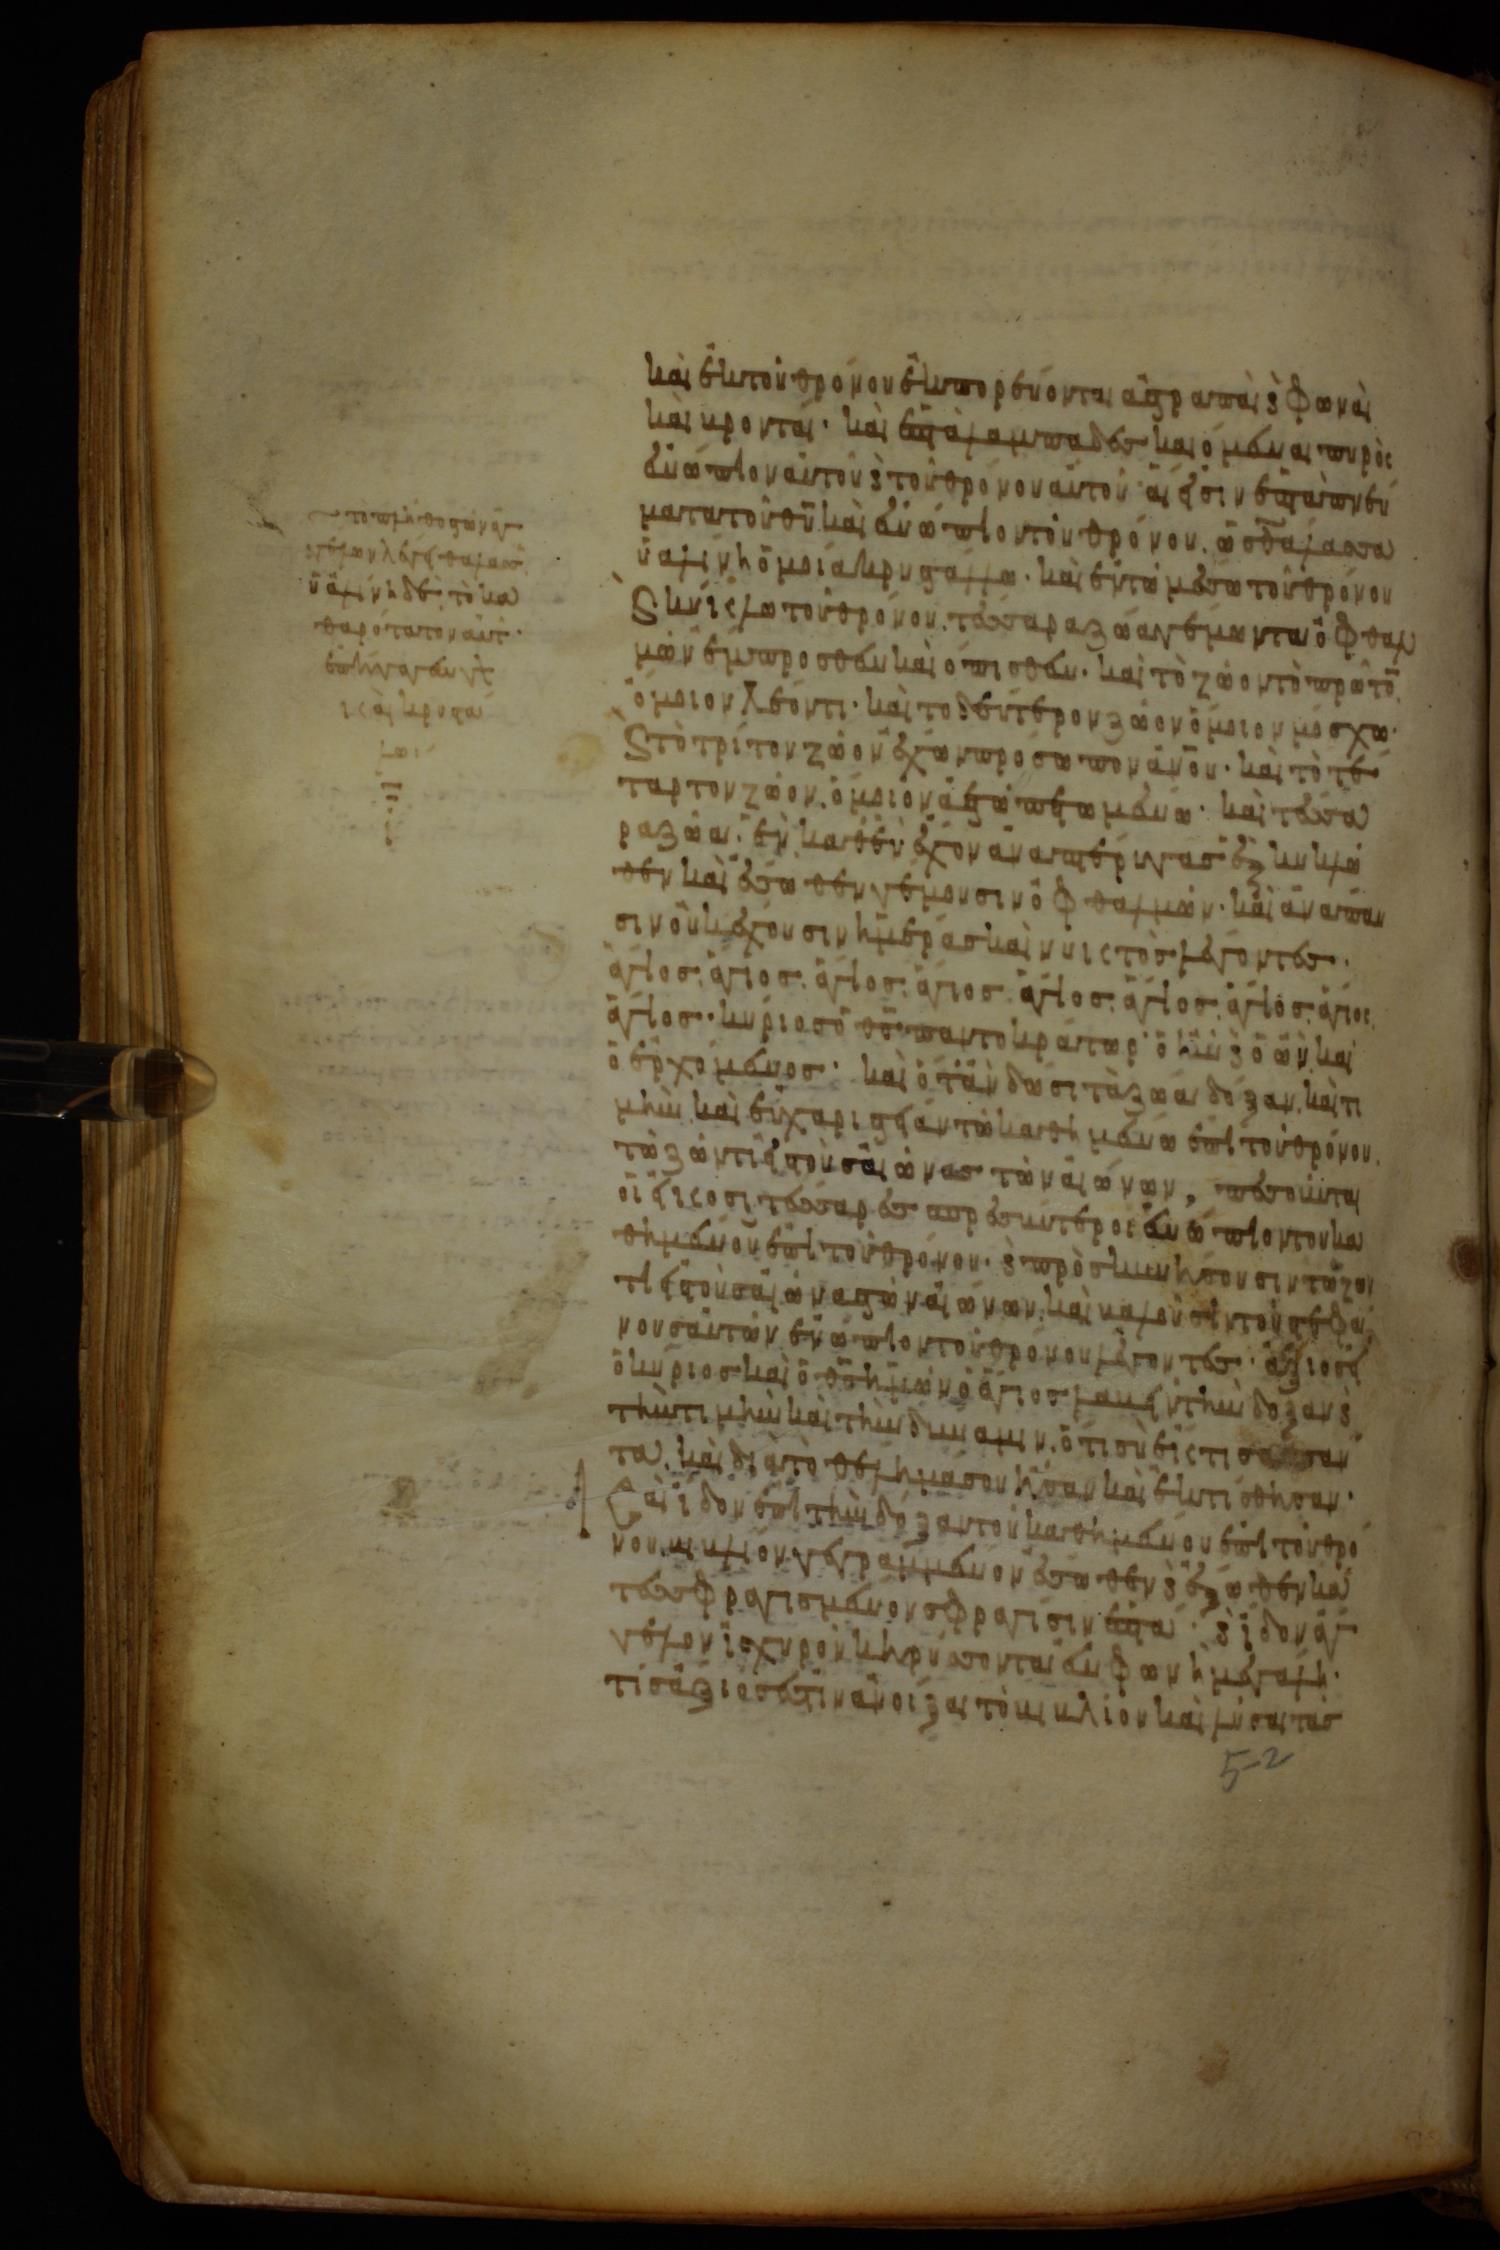 καὶ ἐκ τοῦ θρόνου ἐκπορεύονται ἀστραπαὶ ϗ φωναὶ
καὶ βρονταί· καὶ ἑπτὰ λαμπάδες καιόμεναι πυρὸς
ἐνώπιον αὐτοῦ ϗ τοῦ θρόνου αὐτοῦ· αἵ εἰσιν ἑπτὰ πνεύ
ματα τοῦ θῦ καὶ ἐνώπιον τοῦ θρόνου. ὡς θάλασσα
ὑαλίνη ὁμοία κρυστάλλω· καὶ ἐν τῶ μέσω τοῦ θρόνου
ϗ κύκλω τοῦ θρόνου. τέσσαρα ζῶα γέμοντα ὀφθαλ
μῶν ἔμπροσθεν καὶ ὄπισθεν· καὶ τὸ ζῶον τὸ πρῶτο̄
ὅμοιον λέοντι· καὶ το δεύτερον ζῶον ὅμοιον μόσχω·
ϗ τὸ τρίτον ζῶον ἔχων πρόσωπον ἀνου· καὶ τὸ τέ
ταρτον ζῶον. ὅμοιον ἀετῶ πετωμένω· καὶ τέσσα
ρα ζῶα. ἓν καθ ἓν ἔχον ἀνα πτέρυγας ἓξ κυκλό
θεν καὶ ἔσωθεν γέμουσιν ὀφθαλμῶν· καὶ ἀνάπαυ
σιν οὐκ ἔχουσιν ἡμέρας καὶ νυκτὸς λέγοντες·
ἅγιος. ἅγιος. ἅγιος. ἅγιος. ἅγιος. ἅγιος. ἅγιος. ἅγιος.
ἅγιος·· κύριος ὁ θς παντοκράτωρ· ὁ ἦν ϗ ὁ ὢν καὶ
ὁ ἐρχόμενος· καὶ ὅταν δώσι τὰ ζῶα δόξαν. καὶ τι
μὴν καὶ εὐχαριστίαν τῶ καθημένω ἐπὶ τοῦ θρόνου.
τῶ ζῶντι εἰς τοὺς αἰώνας τῶν αἰώνων, πεσοῦνται
οἱ εἴκοσι τέσσαρες πρεσβύτεροι ἐνώπιον του κα
θημένου ἐπὶ τοῦ θρόνου· ϗ προσκυνήσουσιν τῶ ζῶν
τι εἰς τοὺς αἰῶνας τῶν αἰώνων. καὶ βαλοῦσιν τοὺς στεφά
νους αὐτῶν ἐνώπιον τοῦ θρόνου λέγοντες· ἄξιος εἶ
ὁ κύριος καὶ ὁ θς ἡμῶν ὁ ἅγιος λαβεῖν τὴν δόξαν ϗ
τὴν τιμὴν καὶ τὴν δύναμιν. ὅτι σὺ ἔκτισας παν
τα. καὶ διὰ τὸ θέλημα σου ἦσαν καὶ ἐκτίσθησαν·
Καὶ ἴδον ἐπὶ τὴν δόξαν τοῦ καθημένου ἐπὶ τοῦ θρό
νου. βιβλίον γεγραμμένον ἔσωθεν ϗ ἔξωθεν κα
τεσφραγισμένον σφραγίσιν ἑπτά· ϗ ἴδον ἄγ
γελον ἰσχυρὸν κηρύσσοντα ἐν φωνῆ μεγάλη·
τίς ἄξιος ἐστὶν ἀνοίξαι τὸ βιβλίον καὶ λῦσαι τὰς
52